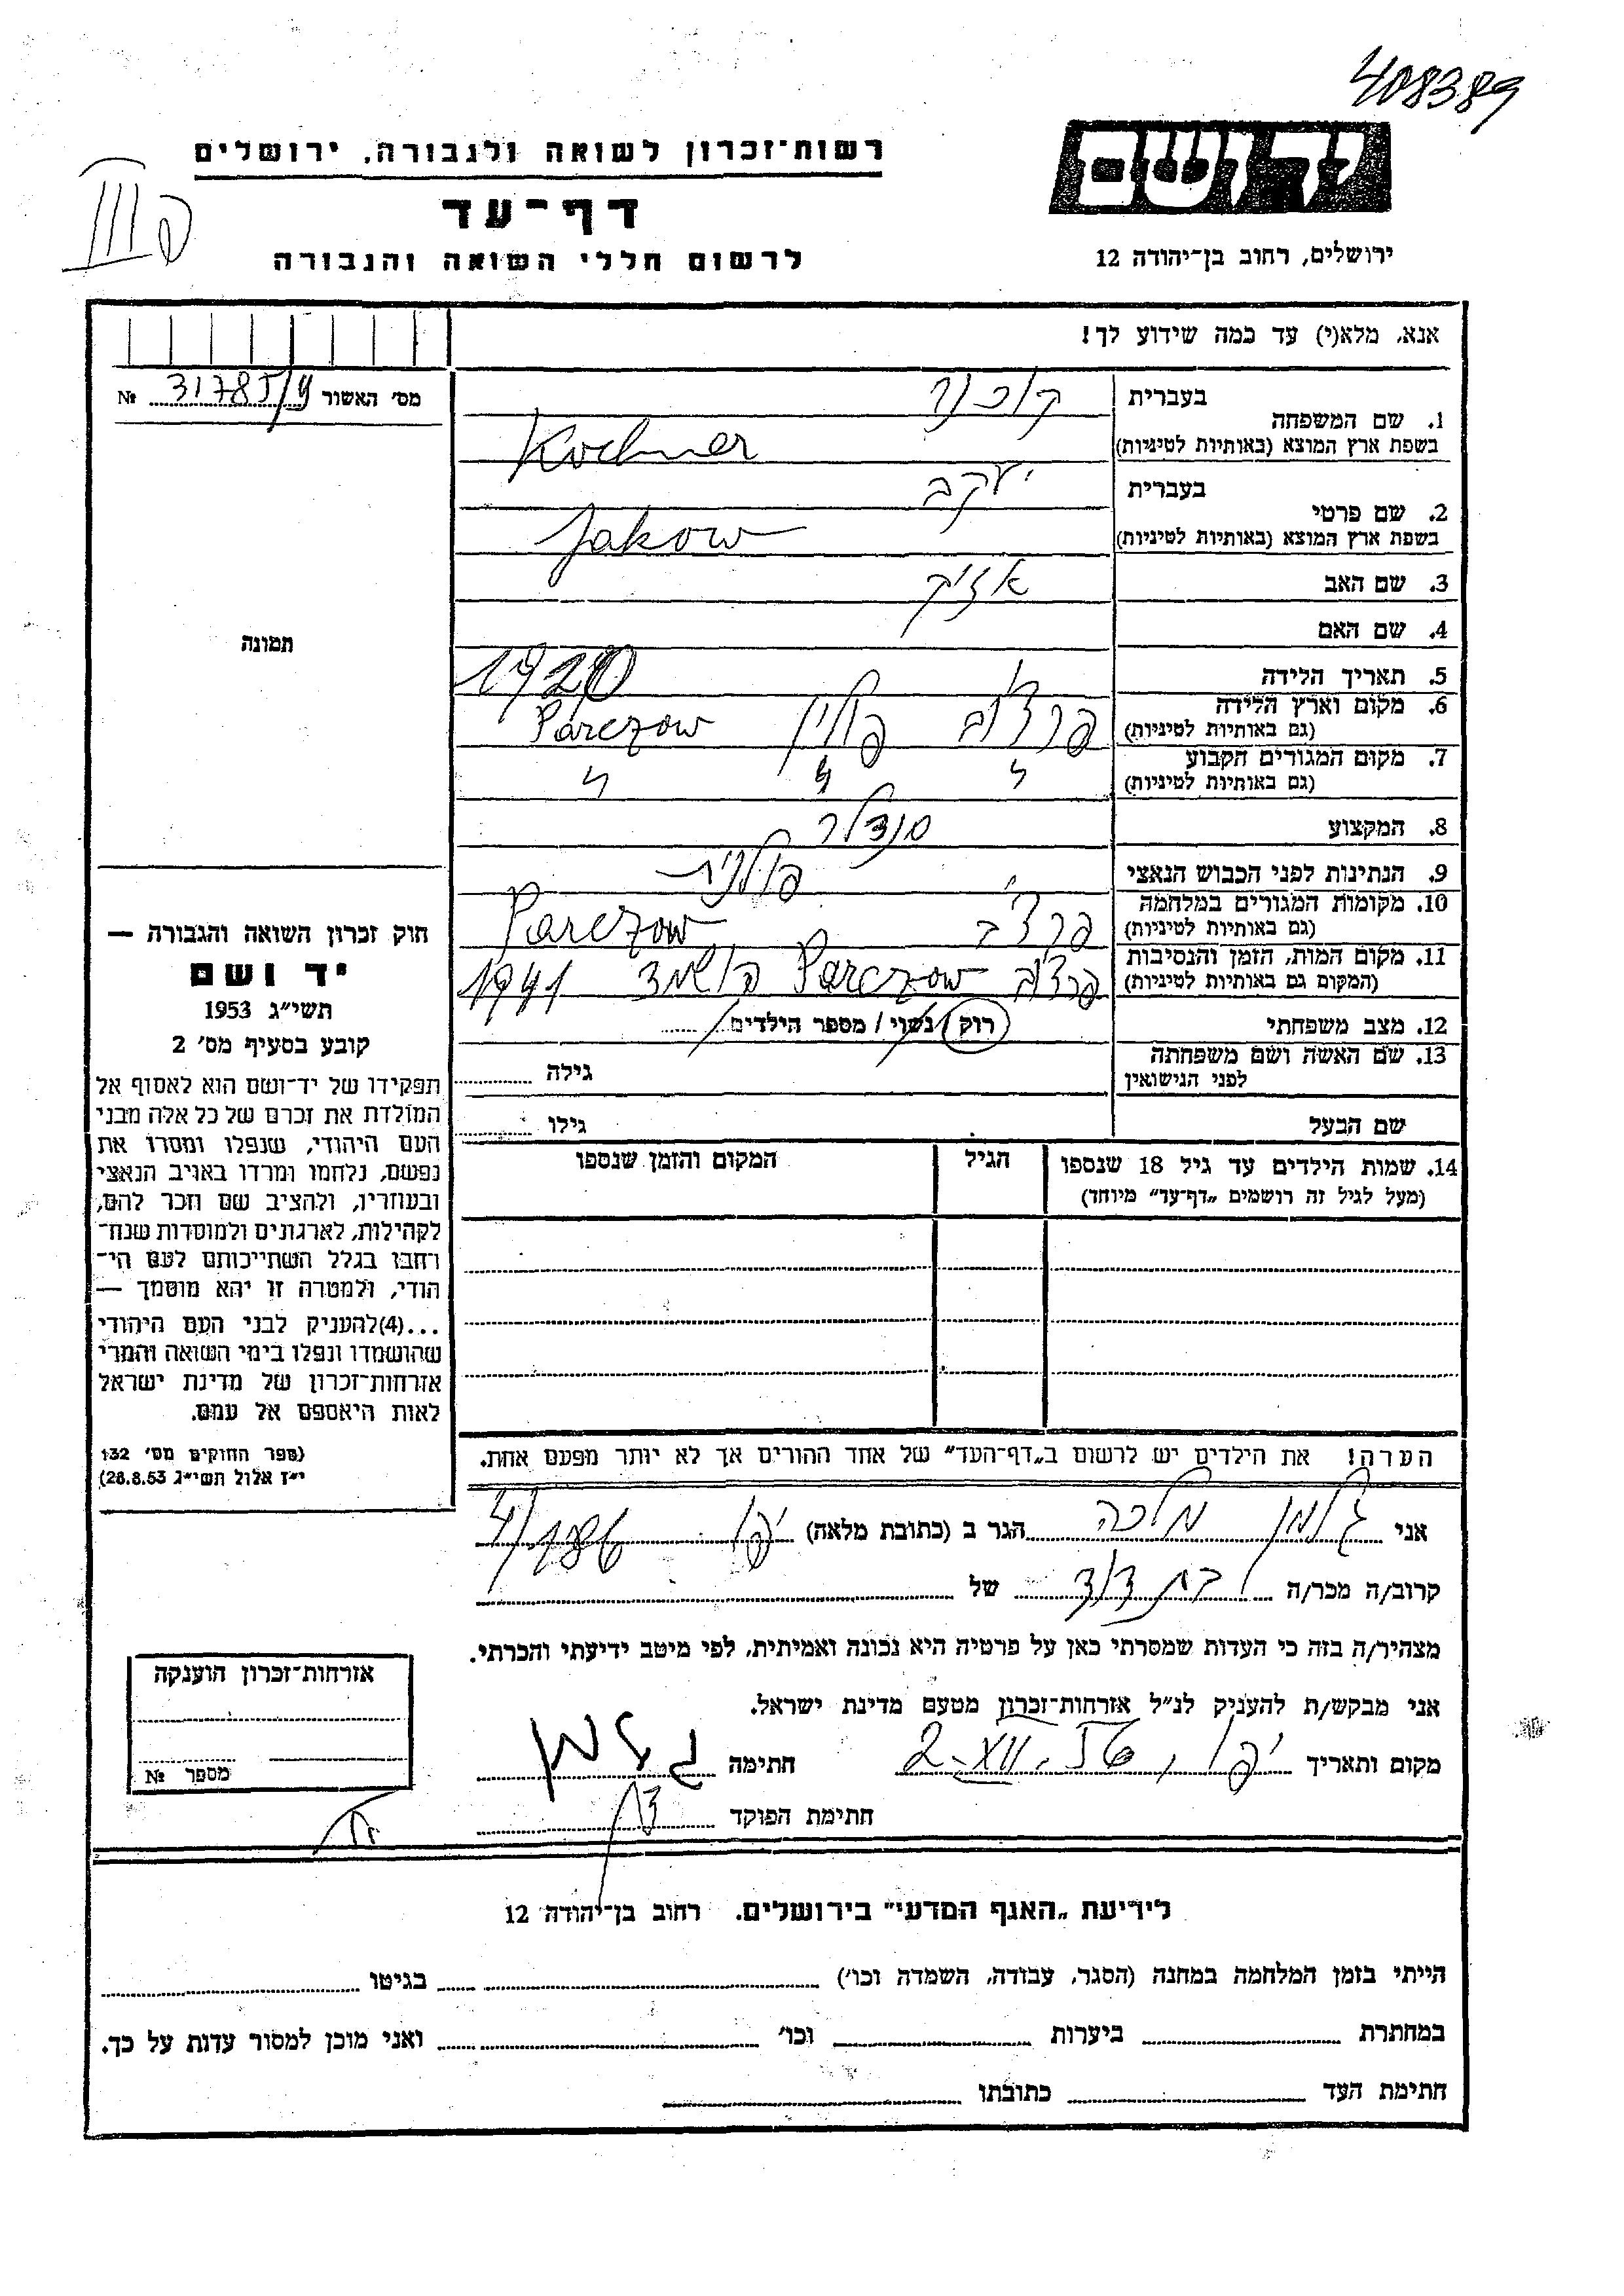 408389
רשות־זכרון לשואה ולגבורה, ירושלים
יד ושם
דף־עד
לרשום חללי השואה והגבורה
ירושלים, רחוב בן־יהודה 12
אנא, מלא(י) עד כמה שידוע לך!
מס׳ האשור № 31785/y
1. שם המשפחה
בעברית קוכנר
בשפת ארץ המוצא (באותיות לטיניות) Kochner
2. שם פרטי
בעברית יעקב
בשפת ארץ המוצא (באותיות לטיניות) Jakow
3. שם האב אזיק
4. שם האם
5. תאריך הלידה 1920
6. מקום וארץ הלידה פרצ'וב פולין Parczow
(גם באותיות לטיניות)
7. מקום המגורים הקבוע
(גם באותיות לטיניות)
8. המקצוע סנדלר
9. הנתינות לפני הכבוש הנאצי פולנית
10. מקומות המגורים במלחמה פרצ'ב Parczow
(גם באותיות לטיניות)
11. מקום המות, הזמן והנסיבות פרצ'וב Parczow הושמד 1941
(המקום גם באותיות לטיניות)
12. מצב משפחתי רוק / נשוי / מספר הילדים
13. שם האשה ושם משפחתה
לפני הנישואין גילה
שם הבעל גילו
14. שמות הילדים עד גיל 18 שנספו הגיל המקום והזמן שנספו
(מעל לגיל זה רושמים „דף־עד” מיוחד)
תמונה
חוק זכרון השואה והגבורה —
יד ושם
תשי״ג 1953
קובע בסעיף מס׳ 2
תפקידו של יד־ושם הוא לאסוף אל
המולדת את זכרם של כל אלה מבני
העם היהודי, שנפלו ומסרו את
נפשם, נלחמו ומרדו באויב הנאצי
ובעוזריו, ולהציב שם וזכר להם,
לקהילות, לארגונים ולמוסדות שנח־
רחבו בגלל השתייכותם לעם הי־
הודי, ולמטרה זו יהא מוסמך —
...(4)להעניק לבני העם היהודי
שהושמדו ונפלו בימי השואה והמרי
אזרחות־זכרון של מדינת ישראל
לאות היאספם אל עמם.
(ספר החוקים מס׳ 132
י״ז אלול תשי״ג 28.8.53)
הערה! את הילדים יש לרשום ב„דף־העד” של אחד ההורים אך לא יותר מפעם אחת.
אני גלמן מלכה הגר ב (כתובת מלאה) יפו
קרוב/ה מכר/ה בת דוד של
מצהיר/ה בזה כי העדות שמסרתי כאן על פרטיה היא נכונה ואמיתית, לפי מיטב ידיעתי והכרתי.
אני מבקש/ת להעניק לנ״ל אזרחות־זכרון מטעם מדינת ישראל.
מקום ותאריך יפו, 2.XII.56 חתימה גלמן
חתימת הפוקד
אזרחות־זכרון הוענקה
מספר №
לידיעת „האגף המדעי” בירושלים. רחוב בן־יהודה 12
הייתי בזמן המלחמה במחנה (הסגר, עבודה, השמדה וכו׳) בגיטו
במחתרת ביערות וכו׳ ואני מוכן למסור עדות על כך.
חתימת העד כתובתו